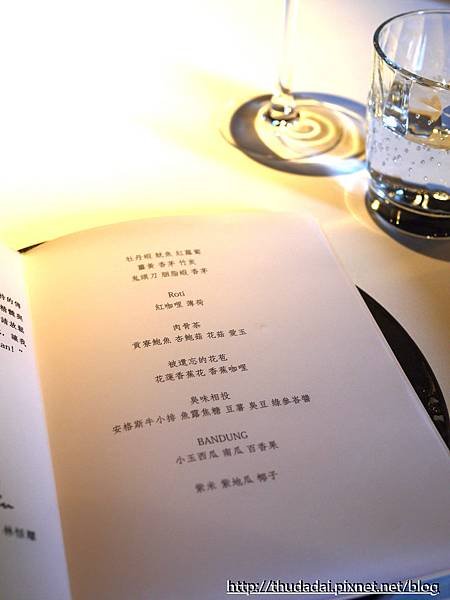 牡丹蝦 魷魚 紅蘿蔔
薑黃 香茅 竹炭
鬼頭刀 胭脂蝦 香茅
Roti
紅咖哩 薄荷
肉骨茶
貢寮鮑魚 杏鮑菇 花菇 愛玉
被遺忘的花苞
花蓮香蕉花 香蕉咖哩
臭味相投
安格斯牛小排 魚露焦糖 豆薯 臭豆 綠參峇醬
BANDUNG
小玉西瓜 南瓜 百香果
紫米 紫地瓜 椰子
an! "
http://thudadai.pixnet.net/blog